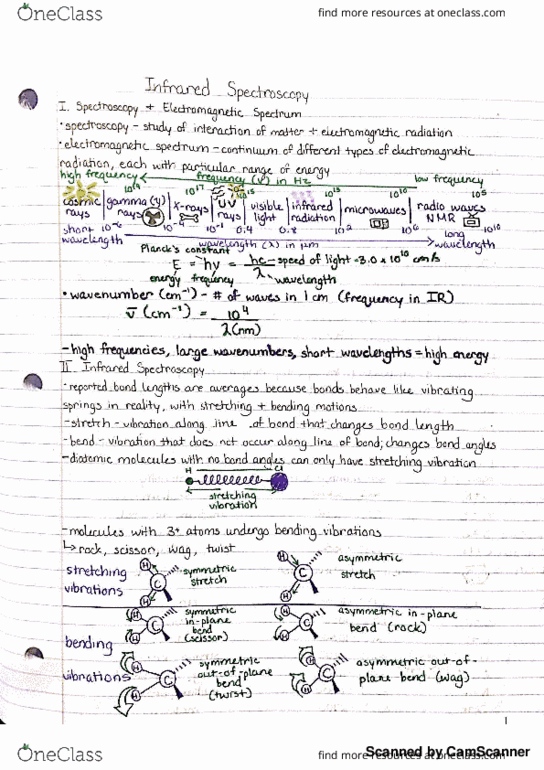 OneClass
find more resources at oneclass.com
Infrared Spectroscopy
I. Spectroscopy + Electromagnetic Spectrum
• spectroscopy - study of interaction of matter + electromagnetic radiation
• electromagnetic spectrum - continuum of different types of electromagnetic
radiation, each with particular range of energy
high frequency frequency (ν) in Hz low frequency
10¹⁷ 10¹⁵ 10¹⁰ 10⁵
cosmic rays gamma (γ) rays x-rays UV rays visible light infrared radiation microwaves radio waves NMR
short 10⁻⁶ 10⁻⁴ 10⁻¹ 0.4 0.8 10² 10⁶ long 10¹⁰
wavelength wavelength (λ) in μm wavelength
Planck's constant
E = hν = hc/λ speed of light = 3.0 x 10¹⁰ cm/s
energy frequency wavelength
• wavenumber (cm⁻¹) - # of waves in 1 cm (frequency in IR)
ν̄ (cm⁻¹) = 10⁴
λ(nm)
- high frequencies, large wavenumbers, short wavelengths = high energy
II. Infrared Spectroscopy
• reported bond lengths are averages because bonds behave like vibrating
springs in reality, with stretching + bending motions
- stretch - vibration along line of bond that changes bond length
- bend - vibration that does not occur along line of bond; changes bond angles
- diatomic molecules with no bond angles can only have stretching vibration
H Cl
stretching
vibration
- molecules with 3+ atoms undergo bending vibrations
↳ rock, scissor, wag, twist
stretching vibrations
H C H symmetric stretch
H C H asymmetric stretch
bending vibrations
H C H symmetric in-plane bend (scissor)
H C H asymmetric in-plane bend (rock)
H C H symmetric out-of-plane bend (twist)
H C H asymmetric out-of-plane bend (wag)
1
OneClass
find more resources at oneclass.com
Scanned by CamScanner